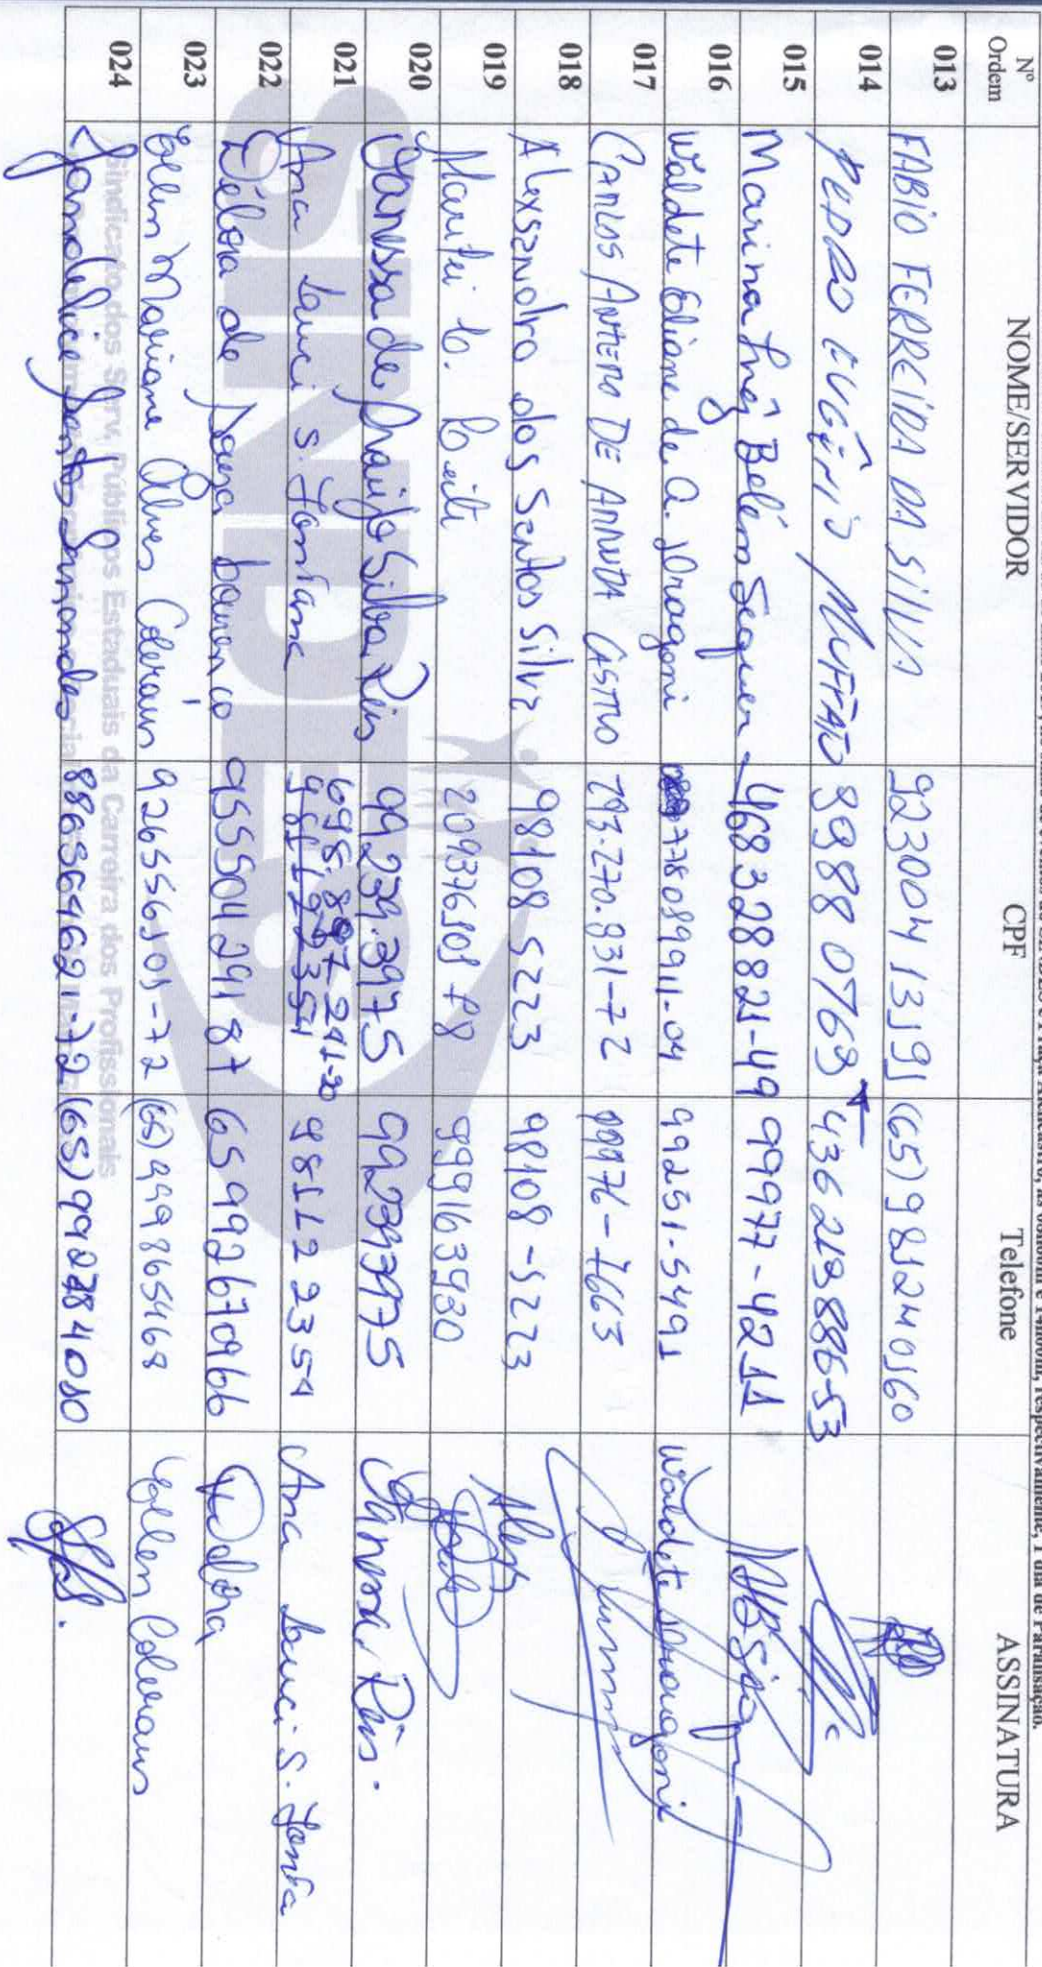 respectivamente, 1 dia de Paralisação.
Nº Ordem NOME/SERVIDOR CPF Telefone ASSINATURA
013 FABIO FERREIRA DA SILVA 92300413191 (65)981240160
014 PEDRO EUGÊNIO MUFFATO 8988 0769 43621988653
015 Marina Inês Belém Sequer 468328821-49 99977-4211
016 Waldete Eliane de A. Dragoni 778089911-04 99251-5491 Waldete Dragoni
017 CARLOS ANTERO DE ARRUDA CASTRO 793.270.831-72 99976-7663
018 Alexsandro dos Santos Silva 98108 5223 98108-5223
019 C. Leite 209376301 999163930
020 Vanessa de Araujo Silva Reis 99239.3975 992393975 Vanessa Reis.
021 Ana Luci S. Fontana 698.897 291-20 981122354 981122354 Ana Luci S. Fonta
022 Débora de Souza Lourenço 95550429187 65992670966 Debora
023 Ellen Mariane Alves Coleraus 926556301-72 (65)999865468 Ellen Coleraus
024 Santos 886364962-72 (65)992784010
SINDES
Sindicato dos Serv. Públicos Estaduais da Carreira dos Profissionais